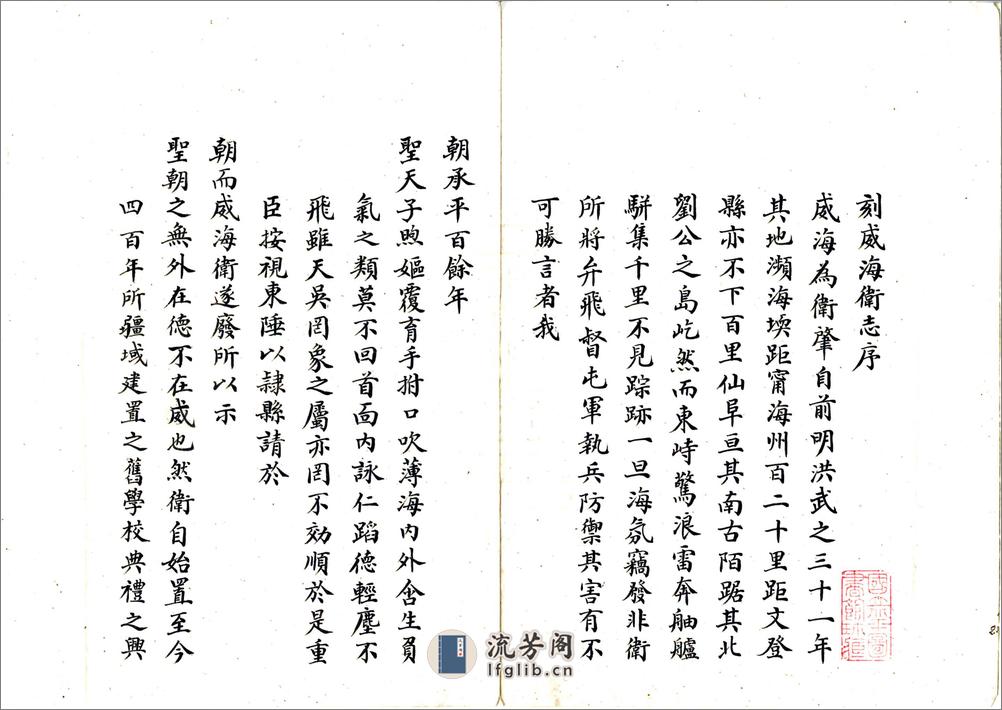 刻威海衛志序
威海為衛肇自前明洪武之三十一年
其地瀕海堧距甯海州百二十里距文登
縣亦不下百里仙阜亘其南古陌踞其北
劉公之島屹然而東峙驚浪雷奔舳艫
駢集千里不見踪跡一旦海氛竊發非衛
所將弁飛督屯軍執兵防禦其害有不
可勝言者我
朝承平百餘年
聖天子煦嫗覆育手拊口吹薄海內外含生負
氣之類莫不回首面內詠仁蹈德輕塵不
飛雖天吳罔象之屬亦罔不効順於是重
臣按視東陲以隷縣請於
朝而威海衛遂廢所以示
聖朝之無外在德不在威也然衛自始置至今
四百年所疆域建置之舊學校典禮之興
流芳阁
lfglib.cn